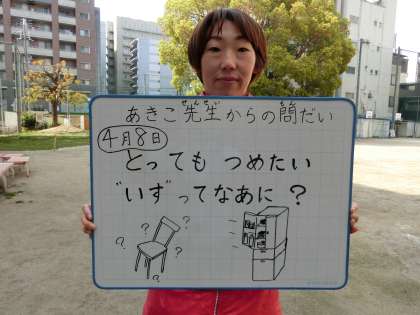 あきこ先生からの問だい
4月8日
とっても つめたい
"いす"ってなあに？
? ? ? ? ?